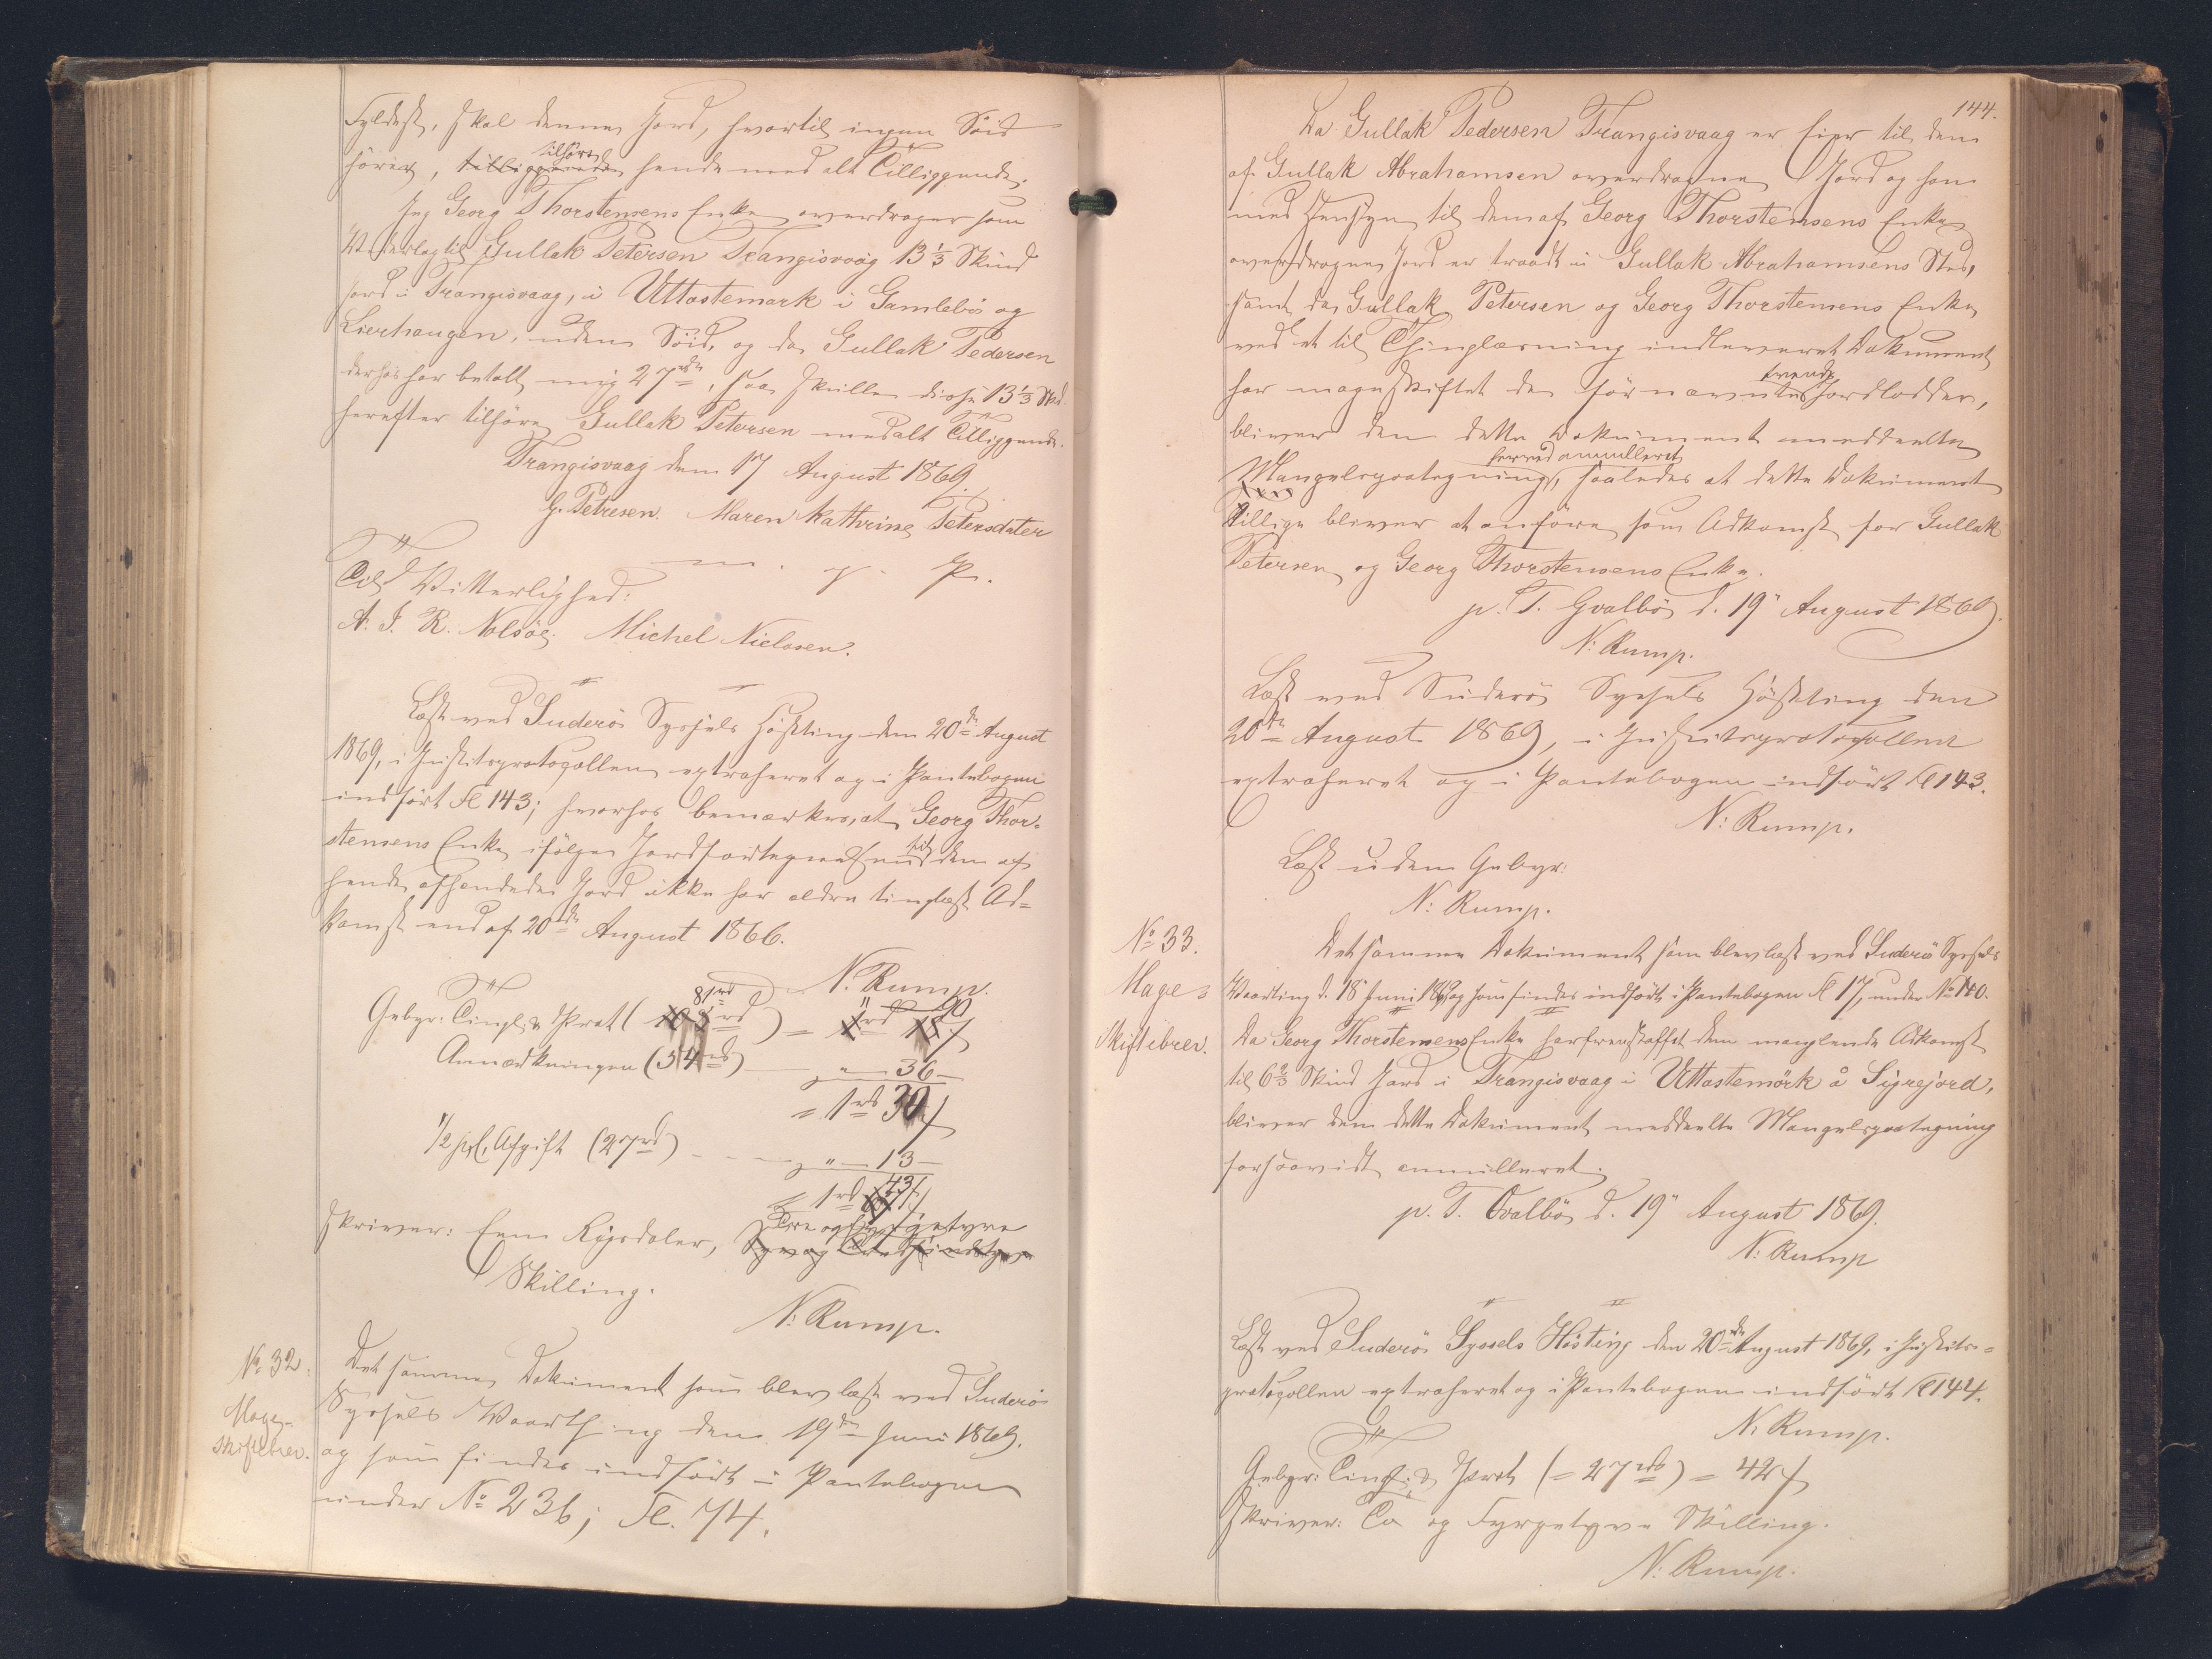 Fyldest, skal denne Jord, hvortil ingen Söid
hörer, tilliggende tilhöre hende med alt Tilliggende.
Jeg Georg Thorstensens Enke overdrager som
Vederlag til Gullak Petersen Trangisvaag 13 1/3 Skind
Jord i Trangisvaag, i Uttastemark i Gamlebö og
Lierhaugen, uden Söid, og da Gullak Pedersen
derhos har betalt mig 27 rd, saa skulle disse 13 1/3 Skd.
herefter tilhöre Gullak Petersen med alt Tilliggende.
Trangisvaag den 17 August 1869.
G. Petersen. Maren Kathrine Petersdater
m. f. P.
Til Vitterlighed:
A. J. R. Nolsöe. Michel Nielssen.
Læst ved Suderö Syssels Höstting den 20de August
1869, i Justitsprotocollen extraheret og i Pantebogen
indfört Fl 143; hvorhos bemærkes, at Georg Thor-
stensens Enke ifölge Jordfortegnelsen til den af
hende afhændede Jord ikke har ældre tinglæst Ad-
komst end af 20de August 1866.
N: Rump.
Gebyr: Tingl. & Prot ( 81 rd ) = " rd 90
Anmærkningen (54 rd) " 36
= 1 rd 30 ſ
1/2 pCt. Afgift (27 rd) " 13
1 rd 43 ſ
skriver: Een Rigsdaler, Tre og fyrgetyve
Skilling.
N: Rump.
No 32.
Mage-
skiftebrev.
Det samme Dokument som blev læst ved Suderö
Syssels Vaarthing den 19de Juni 1869.
og som findes indfört i Pantebogen
under No 236; Fl. 74.
144.
Da Gullak Pedersen Trangisvaag er Eier til den
af Gullak Abrahamsen overdragne Jord og han
med Hensyn til den af Georg Thorstensens Enke
overdragne Jord er traadt i Gullak Abrahamsens Sted,
samt da Gullak Petersen og Georg Thorstensens Enke
ved et til Thinglæsning indleveret Dokument
har mageskiftet de fornævnte Jordlodder,
bliver den dette Dokument meddeelte
Mangelspaategning herved annulleret, saaledes at dette Dokument
tillige bliver at anföre som Adkomst for Gullak
Petersen og Georg Thorstensens Enke.
p. T. Qvalbö d. 19" August 1869.
N: Rump.
Læst ved Suderö Syssels Höstting den
20de August 1869, i Justitsprotocollen
extraheret og i Pantebogen indfört Fl 143.
N: Rump.
Læst uden Gebyr:
N: Rump.
No 33.
Mage-
skiftebrev.
Det samme Dokument som blev læst ved Suderö Syssels
Vaarting d. 18 Juni og som findes indfört i Pantebogen Fl 17, under No 140.
Da Georg Thorstensens Enke har fremskaffet den manglende Adkomst
til 6 2/3 Skind Jord i Trangisvaag i Uttastemörk å Sigrejord,
bliver den dette Dokument meddeelte Mangelspaategning
forsaavidt annulleret.
p. T. Qvalbö d. 19" August 1869.
N: Rump
Læst ved Suderö Syssels Hösting den 20de August 1869, i Justits-
protocollen extraheret og i Pantebogen indfört Fl 144.
N: Rump.
Gebyr: Tingl. & Prot (= 27 rd) = 42 ſ
skriver: To og Fyrgetyve Skilling.
N: Rump.